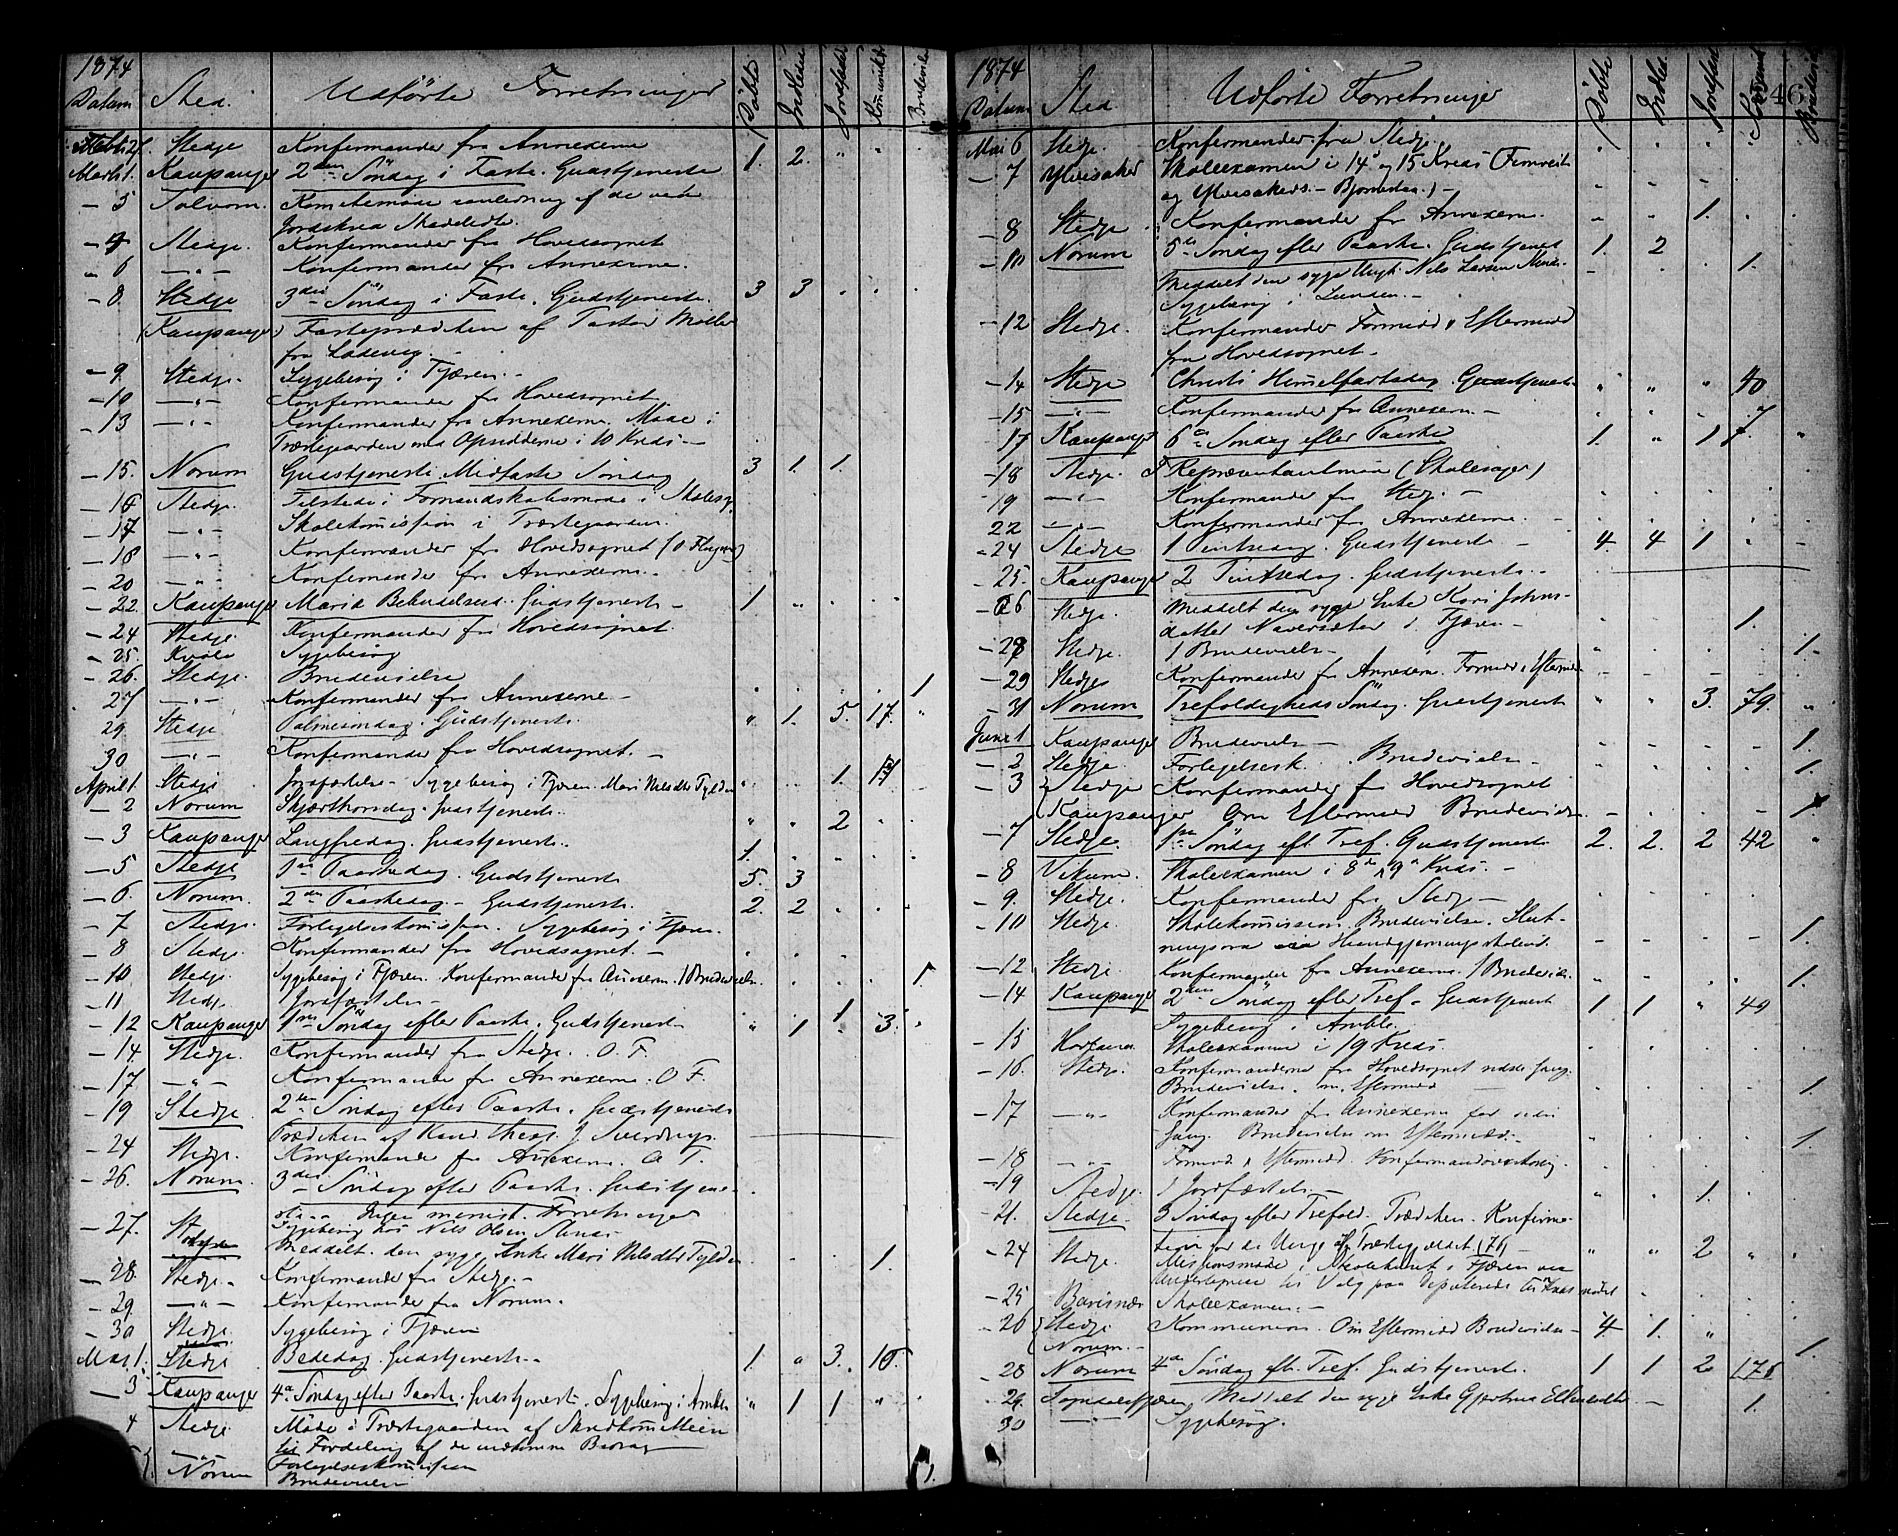 1874
Datum Sted. Udførte Forretninger Døbte Indledte Jordfæstede Kommunik. Brudevielse
Febr 27. Stedje Konfirmander fra Annexerne
Marts 1. Kaupanger 2den Søndag i Faste. Gudstjeneste 1. 2. " "
— 5 Konfirmander fra
— 4 Stedje. Konfirmander fra Hovedsognet
— 6 — " — Konfirmander fra Annexerne.
— 8. Stedje 3die Søndag i Faste. Gudstjeneste. 3 3
(Kaupanger) Fasteprædiken af Pastor Møller
fra
— 9 Stedje. Sygebesøg i Fjæren. —
— 10 — " — Konfirmander fra Hovedsognet
— 13 — " — Konfirmander fra Annexerne. Møde i
Præstegaarden med Opsidderne i 10 Kreds —
— 15. Norum Gudstjeneste Midfaste Søndag 3 1. 1.
— 16 Stedje. Tilstede i Formandskabsmøde i Skolesag
— 17 — " — Skolekomission i Præstegaarden.
— 18 — " — Konfirmander fra Hovedsognet
— 20 — " — Konfirmander fra Annexerne. —
— 22. Kaupanger Mariæ Bebudelsesd. Gudstjeneste — 1 " " "
— 24 Stedje. Konfirmander fra Hovedsognet.
— 25. Kvåle Sygebesøg
— 26. Stedje. Brudevielse 1
27 — " — Konfirmander fra Annexerne —
29. Stedje Palmesøndag. Gudstjeneste. " 1. 5. 17. "
30 — " — Konfirmander fra Hovedsognet. —
April 1. Stedje Jordfæstelse — Sygebesøg i Fjæren. Mari Nilsdtr Fylden " 1.
— 2 Norum Skjærthorsdag. Gudstjeneste. " " 2
— 3 Kaupanger Langfredag. Gudstjeneste. 1.
— 5 Stedje 1ste Paaskedag. Gudstjeneste 5. 3
— 6. Norum. 2den Paaskedag — Gudstjeneste. 2. 2
— 7 Stedje. Forligelseskomission. Sygebesøg i Fjæren.
— 8 Stedje. Konfirmander fra Hovedsognet. —
— 10 Stedje. Sygebesøg i Fjæren. Konfirmander fra Annexerne. 1 Brudevielse. 1
— 11 Stedje. Jordfæstelse — 1
— 12 Kaupanger 1ste Søndag efter Paaske. Gudstjeneste " 1 3.
— 14. Stedje. Konfirmander fra Stedje. O. F.
— 17 — " — Konfirmander fra Annexerne. O F.
— 19 Stedje. 2den Søndag efter Paaske. Gudstjeneste
Prædiken af Kand. theol. J. Sverdrup.
— 24 Stedje. Konfirmander fra Annexerne. O F.
— 26. Norum. 3die Søndag efter Paaske. Gudstjene-
ste — Ingen minist. Forretninger
— 27. Stedje Sygebesøg hos Nils Olsen
Meddelt den syge Enke Mari Nilsdtr Fylden 1.
— 28. Stedje. — Konfirmander fra Stedje. —
— 29. — " — Konfirmander fra Norum.
— 30 Stedje. Sygebesøg i Fjæren
Mai 1. Stedje Bededag. Gudstjeneste. — 1. " 3. 10.
— 3 Kaupanger 4de Søndag efter Paaske. Gudstjeneste. Sygebesøg i Amble " 1 1 "
4 Stedje. Møde i Præstegaarden af Skredkomiteen
til Fordeling af de indkomne Bidrag
5. — " — Forligelseskomission
Norum Brudevielse 1.
1874
Datum Sted Udførte Forretninger Døbte Indled. Jordfæst. Komm. Brudeviel. 46
Mai 6 Stedje. Konfirmander fra Stedje.
— 7 Ylvisaker Skoleexamen i 14de og 15 Kreds (Fimreite
og Ylvisakers — Bjørnedal.) —
— 8 Stedje. Konfirmander fra Annexerne. 1.
— 10 Norum 5te Søndag efter Paaske. Gudstjenest 1. 2
Meddelt den syge Ungk. Nils Larsen 1.
Sygebesøg i Lunden. —
— 12 Stedje. Konfirmander Formidd. & Eftermidd
fra Hovedsognet —
— 14 Stedje Christi Himmelfartsdag. Gudstjeneste. " " " 40
— 15 — " — Konfirmander fra Annexerne. —
17 Kaupanger 6te Søndag efter Paaske 1. " 1 7. "
— 18 Stedje. Repræsentantmøde (Skolesager)
19 — " — Konfirmander fra Stedje. —
22 — " — Konfirmander fra Annexerne. —
— 24 Stedje 1 Pintsedag. Gudstjeneste. — 4. 4 1
— 25. Kaupanger 2 Pintsedag. Gudstjeneste. —
— 26 Stedje. Meddelt den syge Enke Kari Johns-
datter Navarsæter i Fjæren — 1.
— 28 Stedje. 1 Brudevielse — 1.
— 29 Stedje Konfirmander fra Annexerne. Formidd & Eftermidd —
— 31 Norum Trefoldigheds Søndag. Gudstjeneste " " 3. 79. "
Juni 1 Kaupanger Brudevielse — 1.
— 2 Stedje. Forligelsesk. Brudevielse — 1.
— 3 Stedje Konfirmander fra Hovedsognet
Kaupanger Om Eftermidd Brudevielse 1
— 7 Stedje. 1ste Søndag eft. Tref. Gudstjeneste 2. 2. 2 42 "
— 8 Vikum. Skoleexamen i 8de & 9de Kreds. —
— 9. Stedje. Konfirmander fra Stedje —
— 10 Stedje. Skolekomission. Brudevielse. Slut-
ningsprøve i Haandgjerningsskolen. 1.
— 12 Stedje Konfirmander fra Annexerne. 1 Brudeviel. 1.
— 14 Kaupanger 2den Søndag efter Tref. — Gudstjeneste 1 1 " 49
Sygebesøg i Amble.
— 15 Skoleexamen i 19 Kreds
— 16. Stedje. Konfirmanderne fra Hovedsognet sidste Gang.
Brudevielse om Eftermidd 1.
— 17 — " — Konfirmander fra Annexerne for sidste
Gang. Brudevielse om Eftermidd. — 1
— 18 — " — Formidd & Eftermidd. Konfirmandoverhøring.
— 19 Stedje. 1 Jordfæstelse — " " 1.
— 21. Stedje. 3 Søndag efter Trefold. Prædiken. Konfirma-
tion for de Unge af Præstegjældet (76) — " " 2 "
— 24 Stedje. Missionsmøde i Skolehuset i Fjæren
— 25 Barsnes Skoleexamen. —
— 26 Stedje. Kommunion. Om Eftermidd Brudevielse — 4 1. "
Norum. — 1.
— 28 Norum 4de Søndag eft. Tref. Gudstjeneste. 1 1 2
— 29. Sogndalsfjæren Meddelt den syge Enke Gjertrud Ellendatter — 1.
30 — " — Sygebesøg.